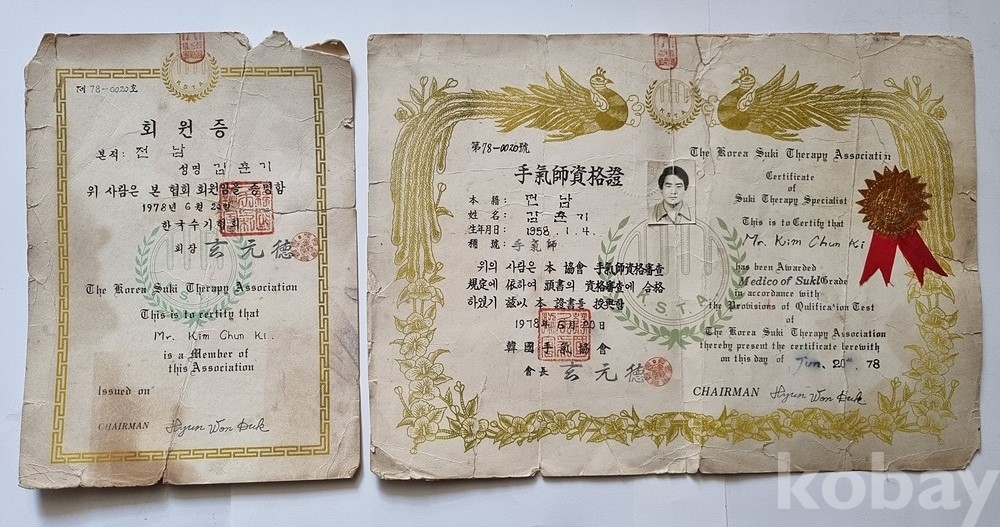 제 78-0020호
회원증
본적: 전 남
성명 김 춘 기
위 사람은 본 협회 회원임을 증명함
1978년 6월 20일
한국수기협회
회장 玄元德
The Korea Suki Therapy Association
This is to certify that
Mr. Kim Chun Ki.
is a Member of
this Association
Issued on
CHAIRMAN Hyun Won Duk
A S T A
第78-0020號
手氣師資格證
本 籍: 전 남
姓 名: 김 춘 기
生年月日: 1958. 1. 4.
稱 號: 手氣師
위의 사람은 本 協會 手氣師資格審査
規定에 依하여 頭書의 資格審査에 合格
하였기 玆以 本 證書를 授與함
1978年 6月 20日
韓國手氣協會
會長 玄元德
The Korea Suki Therapy Association
Certificate
of
Suki Therapy Specialist
This is to Certify that
Mr. Kim Chun Ki
has been Awarded
Medico of Suki Grade
in accordance with
the Provisions of Qulification Test
of
The Korea Suki Therapy Association
thereby present the certificate lerewith
on this day of Jun. 20th. 78
CHAIRMAN Hyun Won Duk
kobay